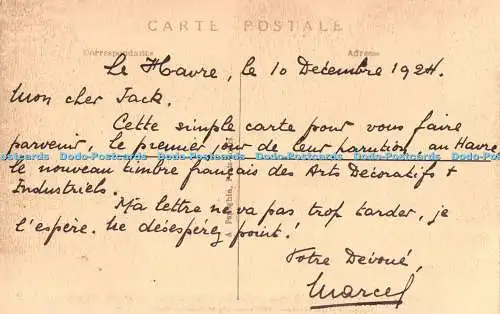 CARTE POSTALE
Correspondance Adresse
Le Havre, le 10 Décembre 1924.
Mon cher Jack.
Cette simple carte pour vous faire
parvenir, le premier jour de leur parution, au Havre
Dodo-Postcards Dodo-Postcards Dodo-Postcards Dodo-Postcards Dodo-Postcards
le nouveau timbre français des Arts Décoratifs &
Industriels.
Ma lettre ne va pas trop tarder, je
l'espère. Ne désespérez point!
Votre Dévoué,
Marcel